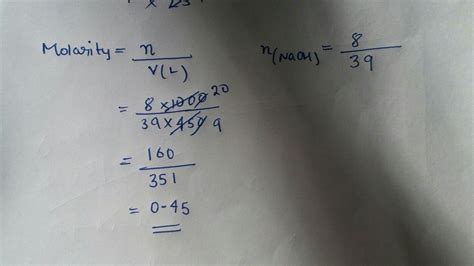 Molarity = n / V(L)
n(NaOH) = 8 / 39
= 8 × 1000 20 / 39 × 450 9
= 160 / 351
= 0-45